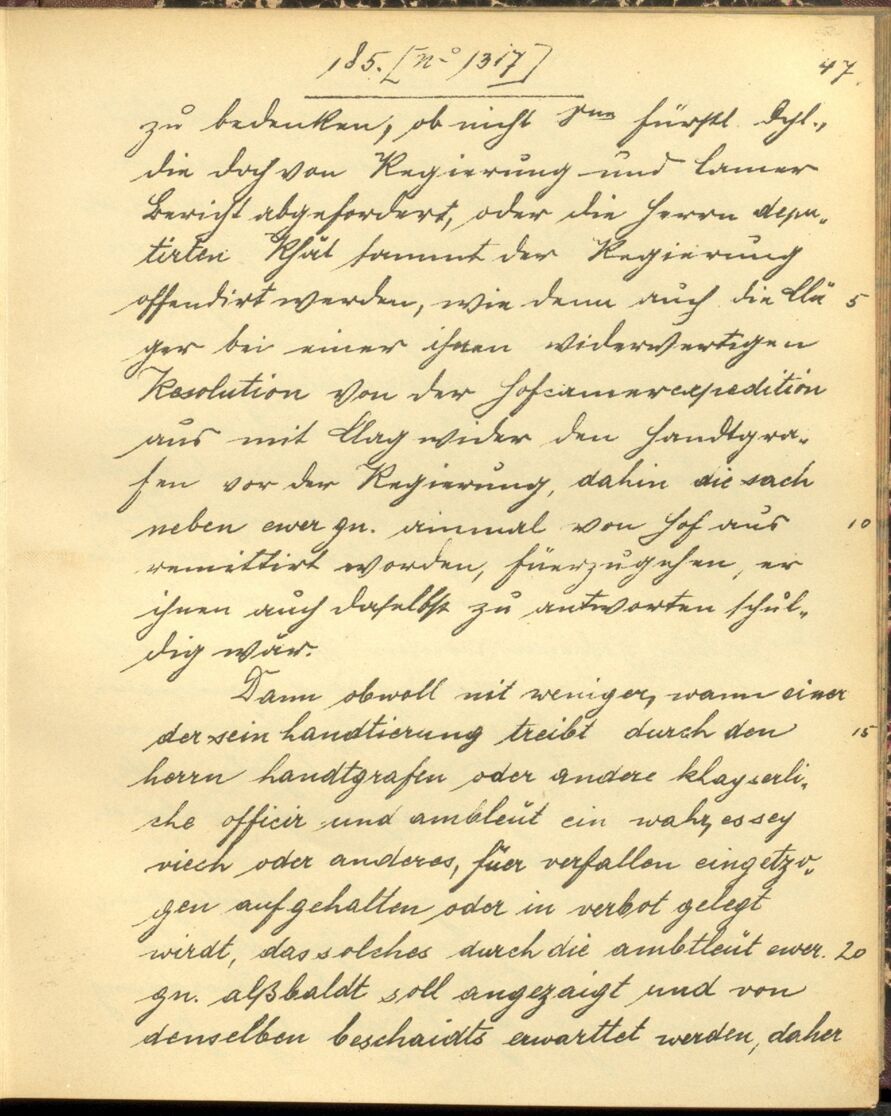 185. [No 1317]
47.
zu bedenken, ob nicht Sr fürstl. dhl.,
die doch von Regierung und Camer
Bericht abgefordert, oder die Herrn depu-
tirten Rhät sammt der Regierung
offendirt werden, wie denn auch die Klä 5
ger bei einer ihnen widerwertigen
Resolution von der Hofcamerexpedition
aus mit Klag wider den Handtgra-
fen vor der Regierung, dahin die sach
neben ewer gn. ainmal von Hof aus 10
remittirt worden, füerzugehen, er
ihnen auch daselbst zu antworten schul-
dig wär.
Dann obwoll nit weniger, wann einer
der sein handtierung treibt durch den 15
herrn handtgrafen oder andere khayserli-
che officir und ambleüt ein wahr, es sey
viech oder anderes, füer verfallen eingetzo-
gen aufgehalten oder in verbot gelegt
wirdt, das solches durch die ambtleüt ewer. 20
gn. alßbaldt soll angezaigt und von
denselben beschaidts erwarttet werden, daher